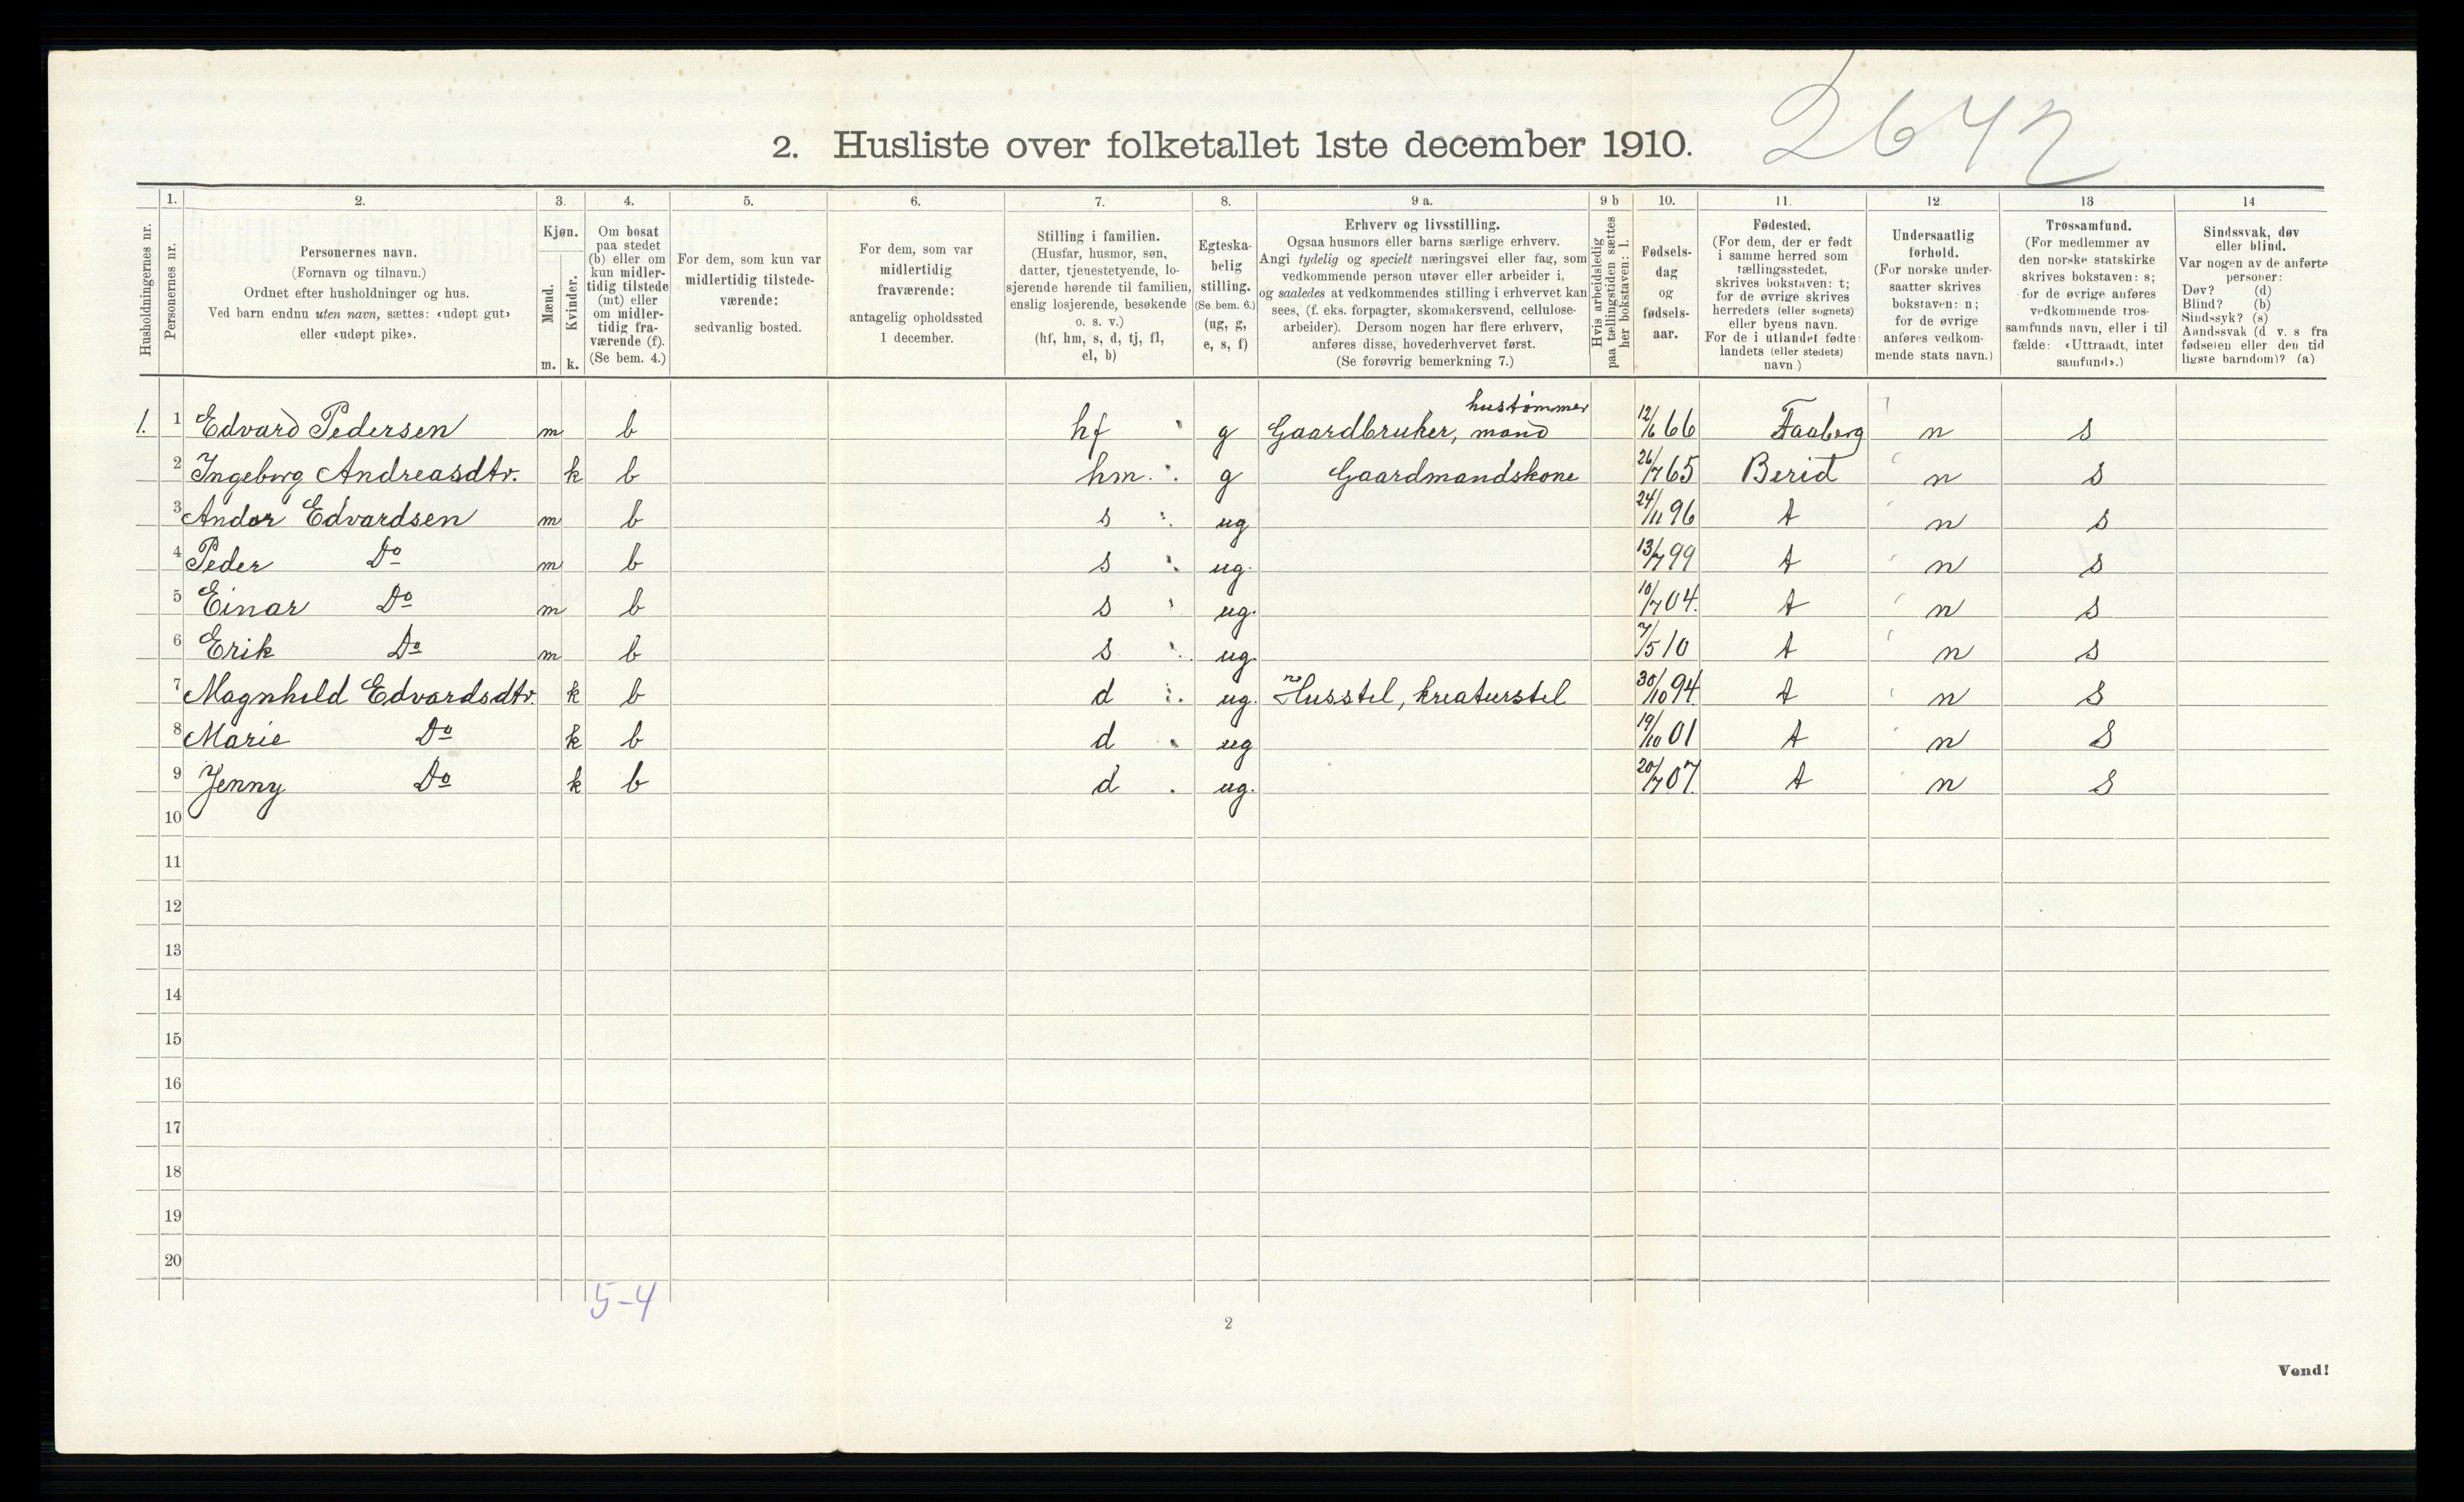 2642
2. Husliste over folketallet 1ste december 1910.
Husholdningernes nr.
1.
Personernes nr.
2.
Personernes navn.
(Fornavn og tilnavn.)
Ordnet efter husholdninger og hus.
Ved barn endnu uten navn, sættes: «udøpt gut»
eller «udøpt pike».
3.
Kjøn.
Mænd.
Kvinder.
m. k.
4.
Om bosat
paa stedet
(b) eller om
kun midler-
tidig tilstede
(mt) eller
om midler-
tidig fra-
værende (f).
(Se bem. 4.)
5.
For dem, som kun var
midlertidig tilstede-
værende:
sedvanlig bosted.
6.
For dem, som var
midlertidig
fraværende:
antagelig opholdssted
1 december.
7.
Stilling i familien.
(Husfar, husmor, søn,
datter, tjenestetyende, lo-
sjerende hørende til familien,
enslig losjerende, besøkende
o. s. v.)
(hf, hm, s, d, tj, fl,
el, b)
8.
Egteska-
belig
stilling.
(Se bem. 6.)
(ug, g,
e, s, f)
9 a.
Erhverv og livsstilling.
Ogsaa husmors eller barns særlige erhverv.
Angi tydelig og specielt næringsvei eller fag, som
vedkommende person utøver eller arbeider i,
og saaledes at vedkommendes stilling i erhvervet kan
sees, (f. eks. forpagter, skomakersvend, cellulose-
arbeider). Dersom nogen har flere erhverv,
anføres disse, hovederhvervet først.
(Se forøvrig bemerkning 7.)
9 b
Hvis arbeidsledig
paa tællingstiden sættes
her bokstaven: l.
10.
Fødsels-
dag
og
fødsels-
aar.
11.
Fødested.
(For dem, der er født
i samme herred som
tællingsstedet,
skrives bokstaven: t;
for de øvrige skrives
herredets (eller sognets)
eller byens navn.
For de i utlandet fødte:
landets (eller stedets)
navn.)
12.
Undersaatlig
forhold.
(For norske under-
saatter skrives
bokstaven: n;
for de øvrige
anføres vedkom-
mende stats navn.)
13
Trossamfund.
(For medlemmer av
den norske statskirke
skrives bokstaven: s;
for de øvrige anføres
vedkommende tros-
samfunds navn, eller i til
fælde: «Uttraadt, intet
samfund».)
14
Sindssvak, døv
eller blind.
Var nogen av de anførte
personer:
Døv? (d)
Blind? (b)
Sindssyk? (s)
Aandssvak (d v. s fra
fødselen eller den tid
ligste barndom)? (a)
hustømmer
1. 1 Edvard Pedersen m b hf g Gaardbruker, mand 12/6 66 Faaberg n s
2 Ingeborg Andreasdtr. k b hm. g Gaardmandskone 26/7 65 Berid n s
3 Andor Edvardsen m b s ug 24/11 96 t n s
4 Peder Do m b s ug. 13/7 99 t n s
5 Einar Do m b s ug. 10/7 04. t n s
6 Erik Do m b s ug. 7/5 10 t n s
7 Magnhild Edvardsdtr. k b d ug. Husstel, kreaturstel 30/10 94 t n s
8 Marie Do k b d ug 19/10 01 t n s
9 Jenny Do k b d ug. 20/7 07. t n s
10
11
12
13
14
15
16
17
18
19
20
5-4
2
Vend!